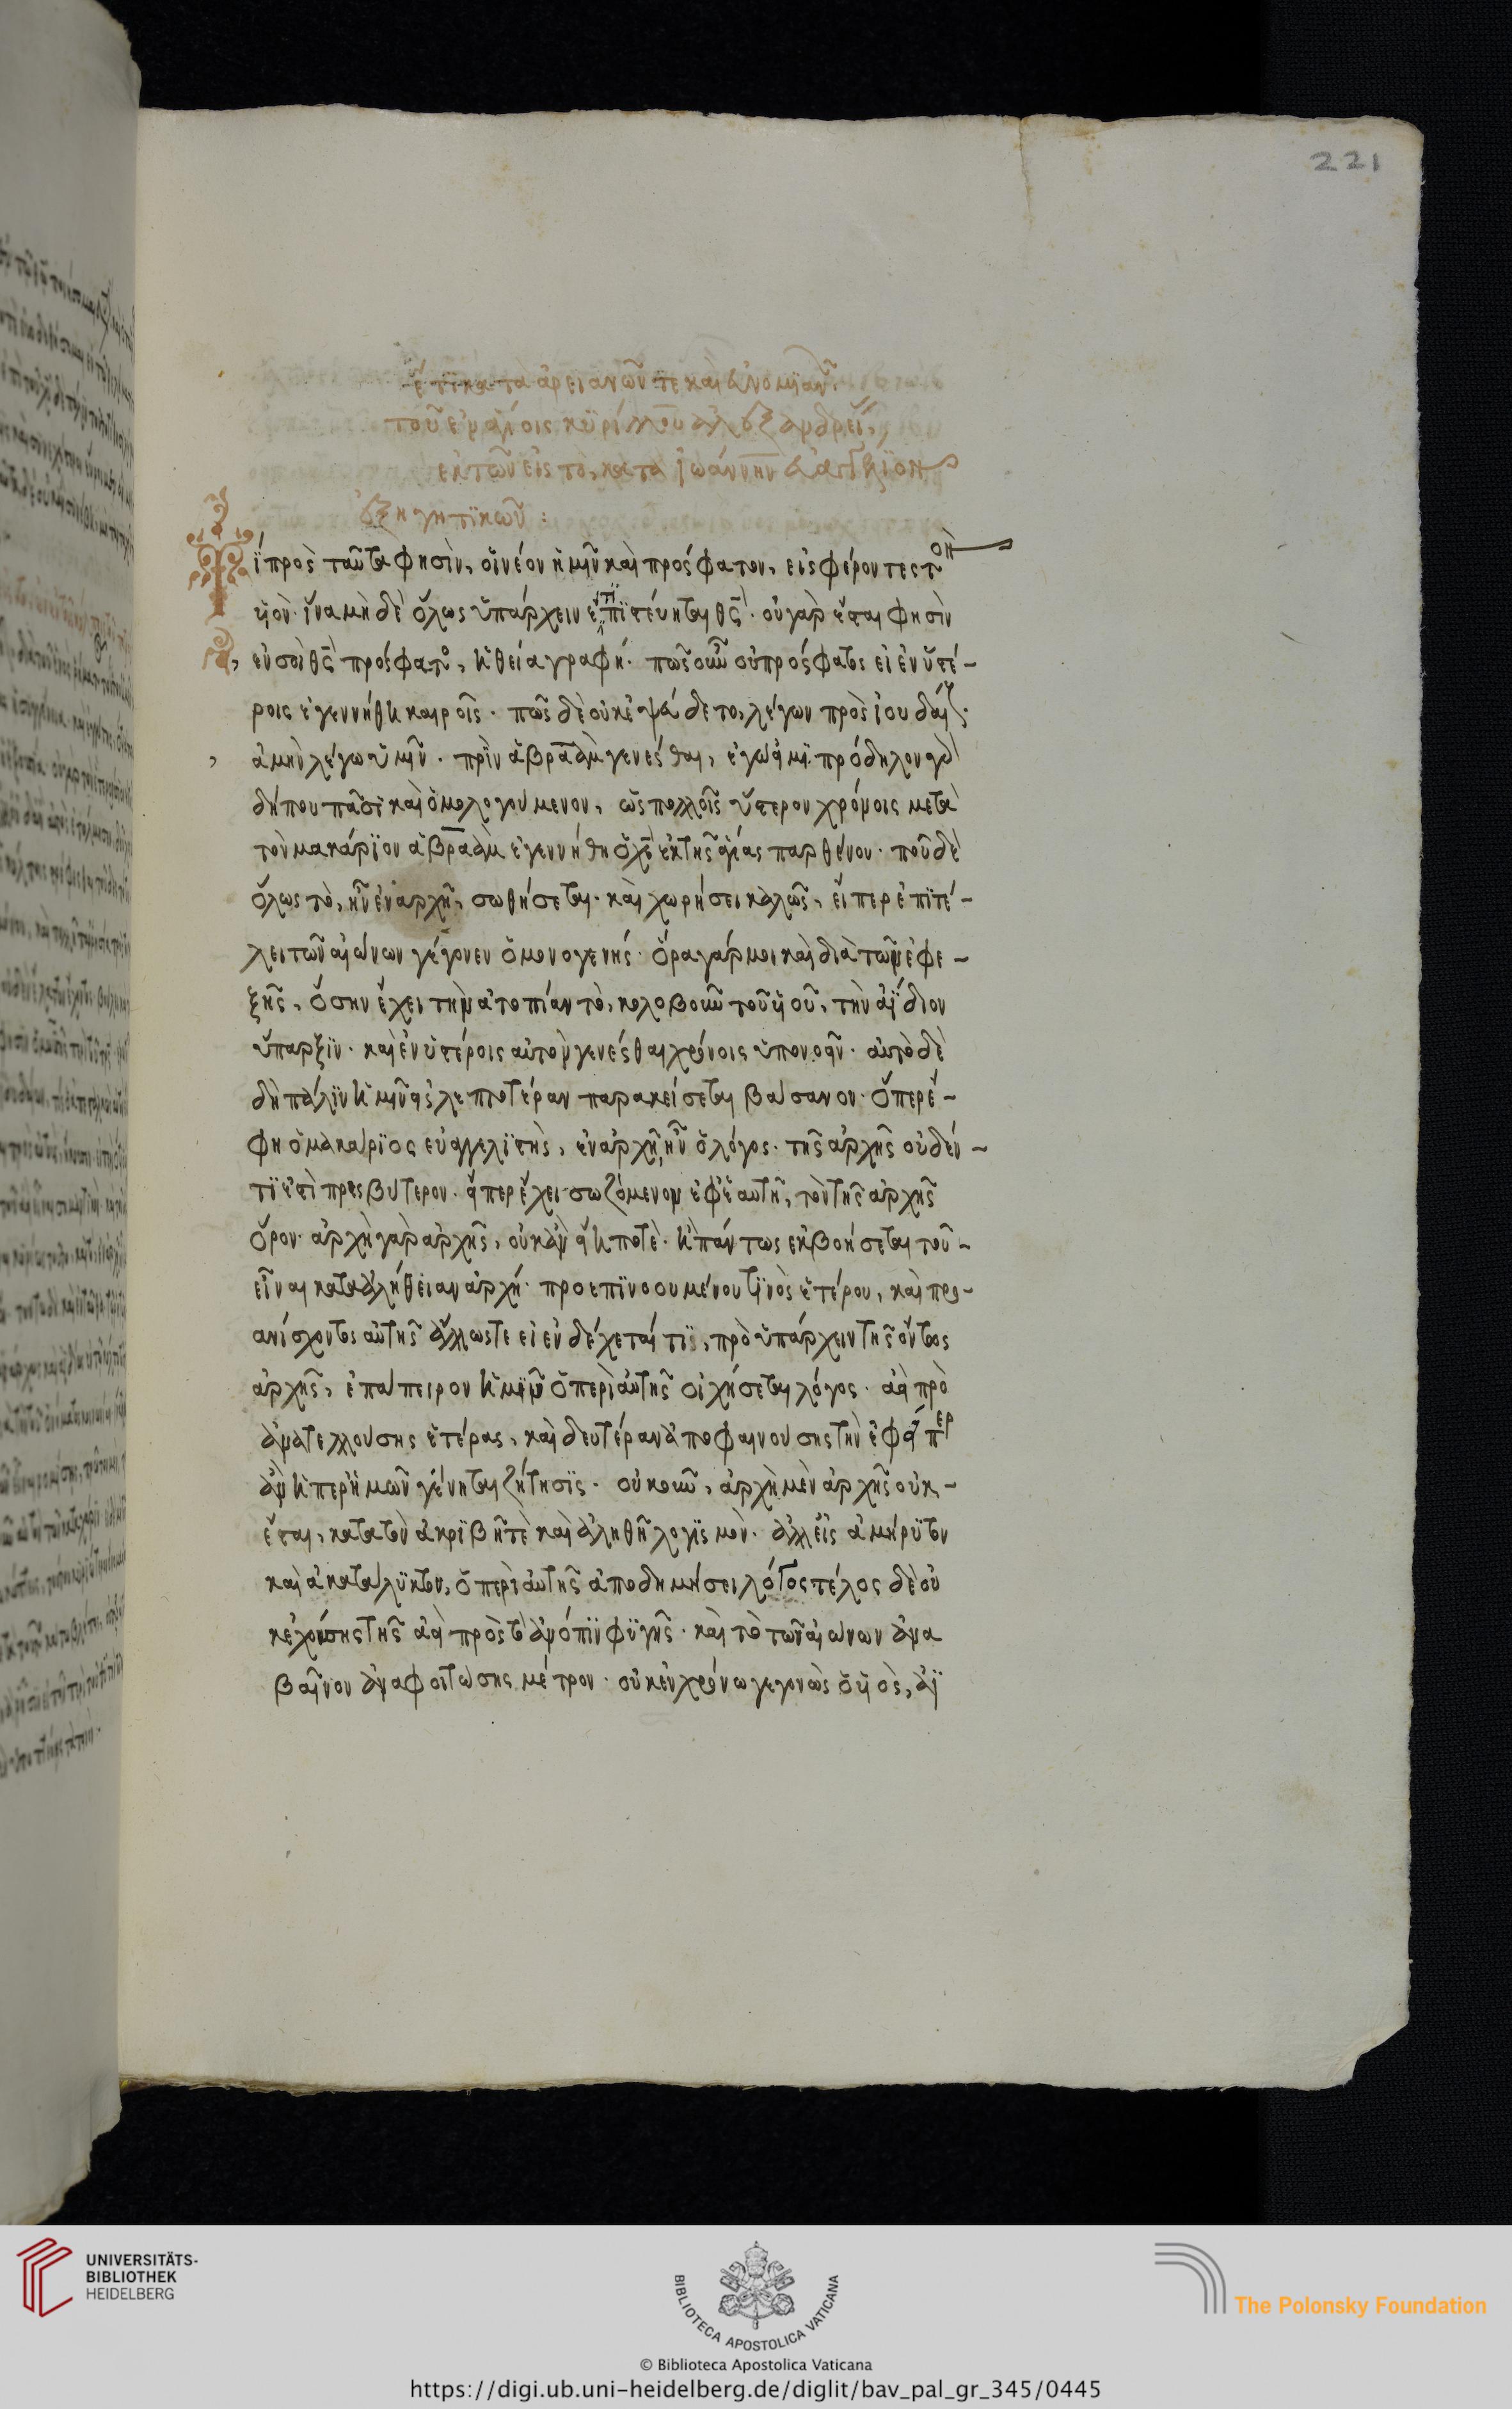 221
ἔτι κατὰ ἀρειανῶν τε καὶ εὐνομιανῶν
τοῦ ἐν ἁγίοις κυρίλλου ἀλεξανδρείας,
ἐκ τῶν εἰς τὸ, κατὰ ἰωάννην εὐαγγέλιον
ἐξηγητικῶν :
Τί πρὸς ταῦτα φησὶν, οἱ νέον ἡμῖν καὶ πρόσφατον, εἰσφέροντες τὸν
υἱὸν· ἵνα μὴ δὲ ὅλως ὑπάρχειν ἔτι πιστεύηται θς̅· οὐ γὰρ ἔσται φησὶν
ἐν σοὶ θς̅ πρόσφατος, ἡ θεία γραφή· πῶς οὖν οὐ πρόσφατος εἰ ἐν ὑστέ-
ροις ἐγεννήθη καιροῖς· πῶς δὲ οὐκ ἐψεύδετο, λέγων πρὸς ἰουδαίους·
ἀμὴν λέγω ὑμῖν· πρὶν ἀβραὰμ γενέσθαι, ἐγώ εἰμι· πρόδηλον γὰρ
δήπου πᾶσι καὶ ὁμολογούμενον, ὡς πολλοῖς ὕστερον χρόνοις μετὰ
τὸν μακάριον ἀβραὰμ ἐγεννήθη ὁ χς̅ ἐκ τῆς ἁγίας παρθένου· ποῦ δὲ
ὅλως τὸ, ἦν ἐν ἀρχῆ, σωθήσεται· καὶ χωρήσει καλῶς, εἴπερ ἐπὶ τέ-
λει τῶν αἰώνων γέγονεν ὁ μονογενής· ὅρα γάρ μοι καὶ διὰ τῶν ἐφε-
ξῆς, ὅσην ἔχει τὴν ἀτοπίαν τὸ, κολοβοῦν τοῦ υἱοῦ, τὴν ἀΐδιον
ὕπαρξιν· καὶ ἐν ὑστέροις αὐτὸν γενέσθαι χρόνοις ὑπονοεῖν· αὐτὸ δὲ
δὴ πάλιν ἡμῖν εἰς λεπτοτέραν παρακείσεται βάσανον· ὅπερ ἔ-
φη ὁ μακάριος εὐαγγελιστὴς, ἐν ἀρχῇ ἦν ὁ λόγος· τῆς ἀρχῆς οὐδέν
τί ἐστὶ πρεσβύτερον· εἴπερ ἔχει σωζόμενον ἐφ' ἑαυτῇ, τὸν τῆς ἀρχῆς
ὅρον· ἀρχὴ γὰρ ἀρχῆς, οὐκ ἂν εἴη ποτὲ· ἢ πάντως ἐκβοήσεται τοῦ
εἶναι κατὰ ἀλήθειαν ἀρχή· προεπινοουμένου τινὸς ἑτέρου, καὶ προ-
ανίσχοντος αὐτῆς ἄλλωστε εἰ ἐνδέχεταί τι, πρὸ ὑπάρχειν τῆς ὄντως
ἀρχῆς, ἐπ' ἄπειρον ἡμῖν ὁ περὶ αὐτῆς οἰχήσεται λόγος· ἀεὶ προ
ἀνατελλούσης ἑτέρας, καὶ δευτέραν ἀποφαινούσης τὴν ἐφ' ᾗπερ
ἂν ἡ περὶ ἡμῶν γένηται ζήτησις· οὐκοῦν, ἀρχὴ μὲν ἀρχῆς οὐκ
ἔσται, κατὰ τὸν ἀκριβῆ τε καὶ ἀληθῆ λογισμὸν· ἀλλ' εἰς ἀμήρυτον
καὶ ἀκατάληκτον, ὁ περὶ αὐτῆς ἀποδημήσει λόγος τέλος δὲ οὐ
κ ἐχούσης τῆς ἀεὶ πρὸς τὸ ἀνόπιν φυγῆς· καὶ τὸ τῶν αἰώνων ἀνα
βαῖνον ἀναφοιτώσης μέτρον· οὐκ ἐν χρόνω γεγονὼς ὁ υἱὸς, ἀϊ
UNIVERSITÄTS-
BIBLIOTHEK
HEIDELBERG
BIBLIOTECA APOSTOLICA VATICANA
The Polonsky Foundation
© Biblioteca Apostolica Vaticana
https://digi.ub.uni-heidelberg.de/diglit/bav_pal_gr_345/0445